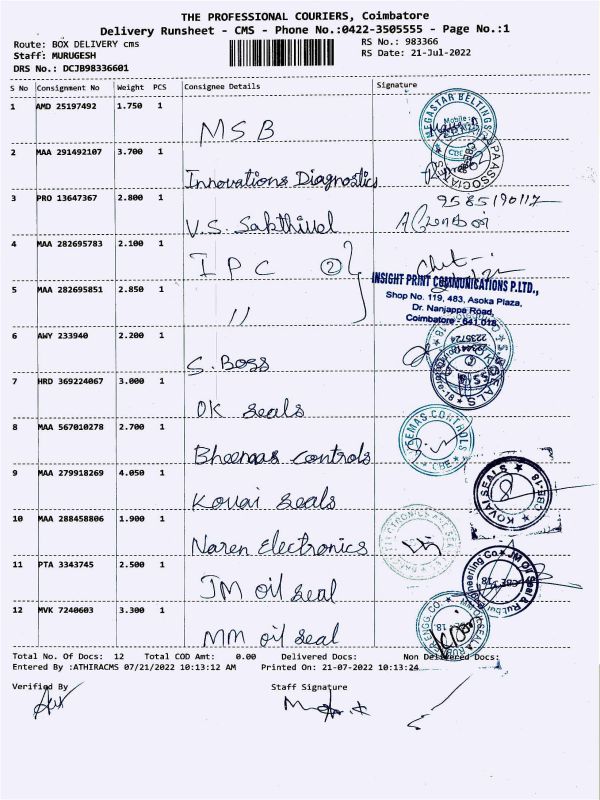 THE PROFESSIONAL COURIERS, Coimbatore
Delivery Runsheet - CMS - Phone No.:0422-3505555 - Page No.:1
Route: BOX DELIVERY cms
RS No.: 983366
Staff: MURUGESH
RS Date: 21-Jul-2022
DRS No.: DCJB98336601
S No Consignment No Weight PCS Consignee Details Signature
1 AMD 25197492 1.750 1
MSB
MEGASTAR BELTINGS
CBE
2 MAA 291492107 3.700 1
Innovations Diagnostics
3 PRO 13647367 2.800 1
V.S. Sakthivel
9585190117
4 MAA 282695783 2.100 1
IPC 2
INSIGHT PRINT COMMUNICATIONS P.LTD.,
Shop No. 119, 483, Asoka Plaza,
Dr. Nanjappa Road,
Coimbatore - 641 018.
5 MAA 282695851 2.850 1
"
6 AWY 233940 2.200 1
S. Boss
7 HRD 369224067 3.000 1
OK seals
8 MAA 567010278 2.700 1
Bheemas controls
CONTROLS
CBE
9 MAA 279918269 4.050 1
Kovai seals
KOVAI SEALS
CBE-18
10 MAA 288458806 1.900 1
Naren Electronics
11 PTA 3343745 2.500 1
JM oil seal
12 MVK 7240603 3.300 1
MM oil seal
Total No. Of Docs: 12 Total COD Amt: 0.00 Delivered Docs: Non Delivered Docs:
Entered By :ATHIRACMS 07/21/2022 10:13:12 AM Printed On: 21-07-2022 10:13:24
Verified By
Staff Signature